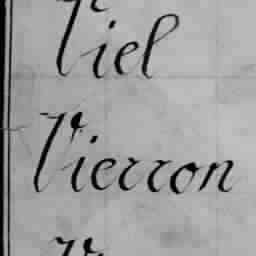 Viel
Vierron